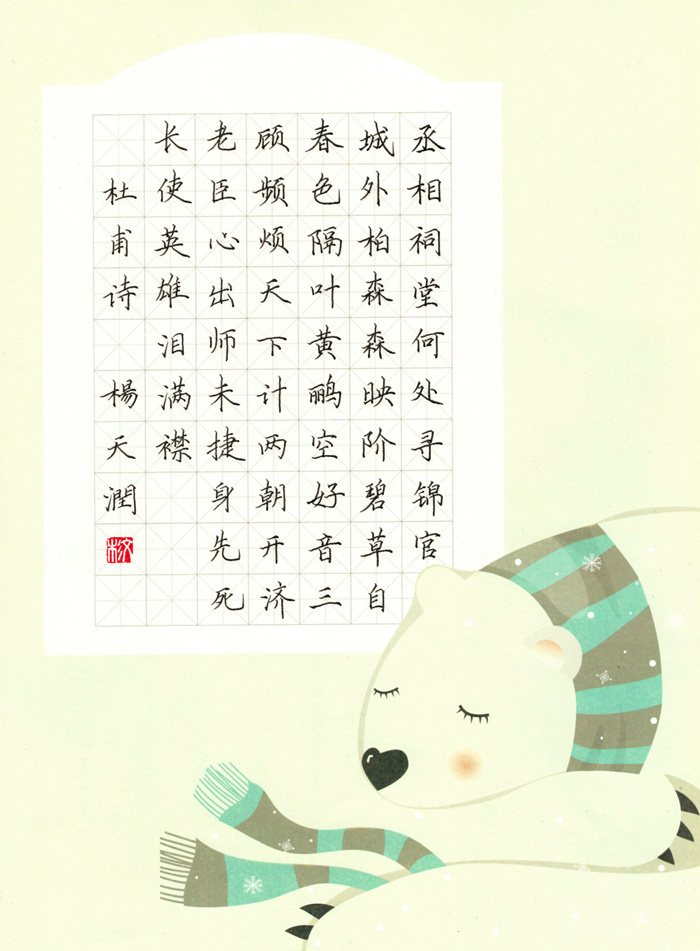 丞相祠堂何处寻锦官
城外柏森森映阶碧草自
春色隔叶黄鹂空好音三
顾频烦天下计两朝开济
老臣心出师未捷身先死
长使英雄泪满襟
杜甫诗 楊天潤